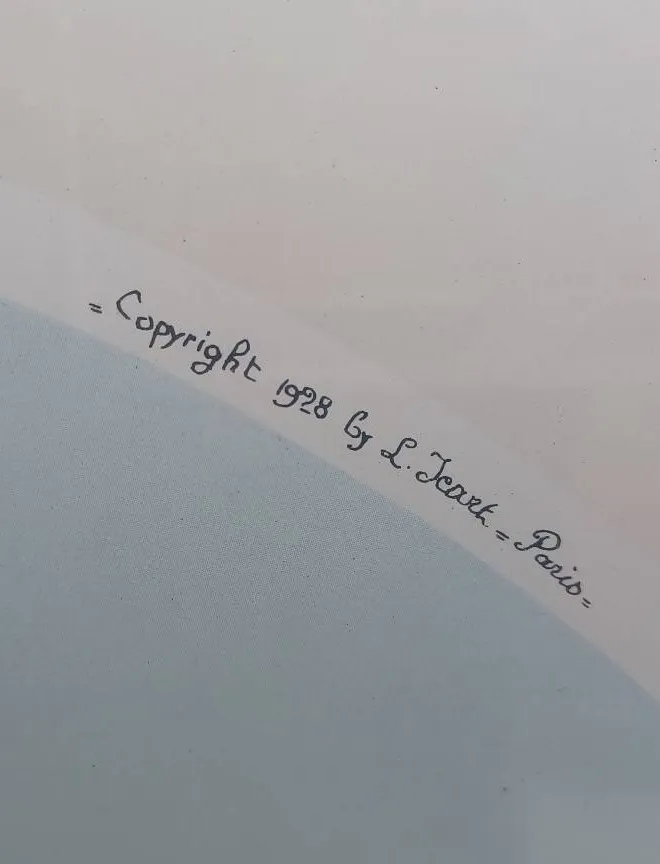 = Copyright 1928 by L. Icart = Paris =